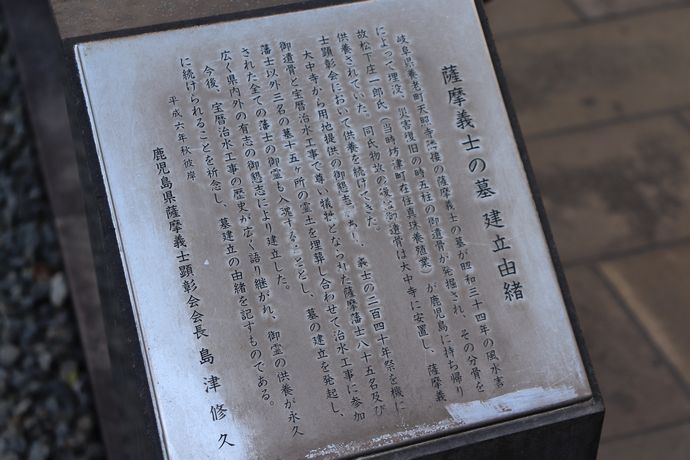 薩摩義士の墓 建立由緒
岐阜県養老町天照寺境接の薩摩義士の墓が昭和三十四年の風水害
によって埋没、災害復旧の時五柱の御遺骨が発掘され、その分骨を
故松下庄一郎氏（当時坊津町在住真珠養殖業）が鹿児島に持ち帰り
供養されていた。同氏物故の後は御遺骨は大中寺に安置し、薩摩義
士顕彰会において供養を続けてきた。
大中寺から用地提供の御懇志があり、義士の二百四十年祭を機に
御遺骨と宝暦治水工事で尊い犠牲となられた薩摩藩士八十五名及び
藩士以外三名の墓十五ヶ所の霊土を埋葬し合わせて治水工事に参加
された全ての藩士の御霊も入魂することとし、墓の建立を発起し、
広く県内外の有志の御懇志により建立した。
今後、宝暦治水工事の歴史が広く語り継がれ、御霊の供養が永久
に続けられることを祈念し、墓建立の由緒を記すものである。
平成六年秋彼岸
鹿児島県薩摩義士顕彰会会長 島津修久